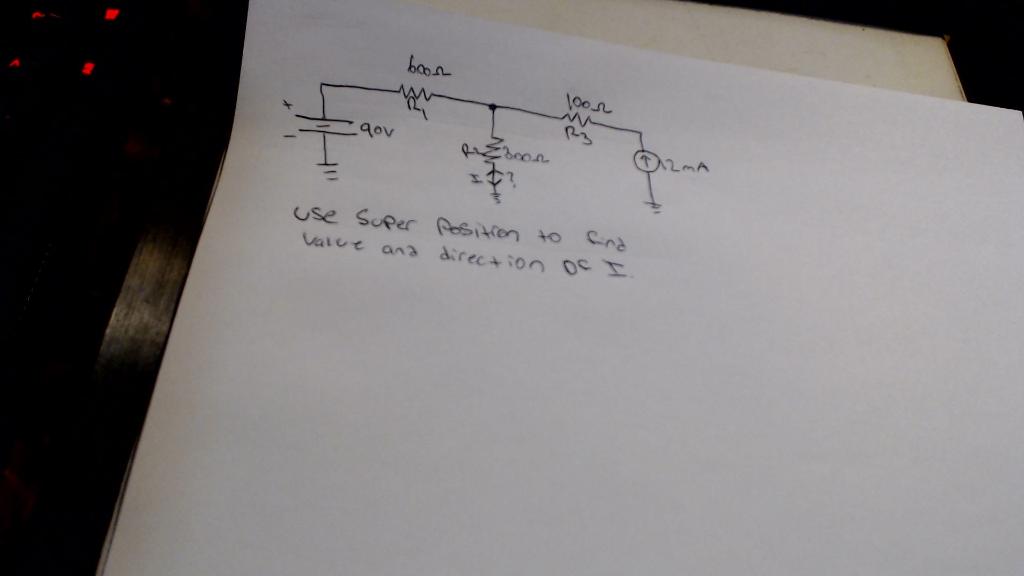 600Ω
R1
100Ω
R3
+
90V
-
R2
300Ω
I
?
12mA
Use Super Position to find
Value and direction of I.